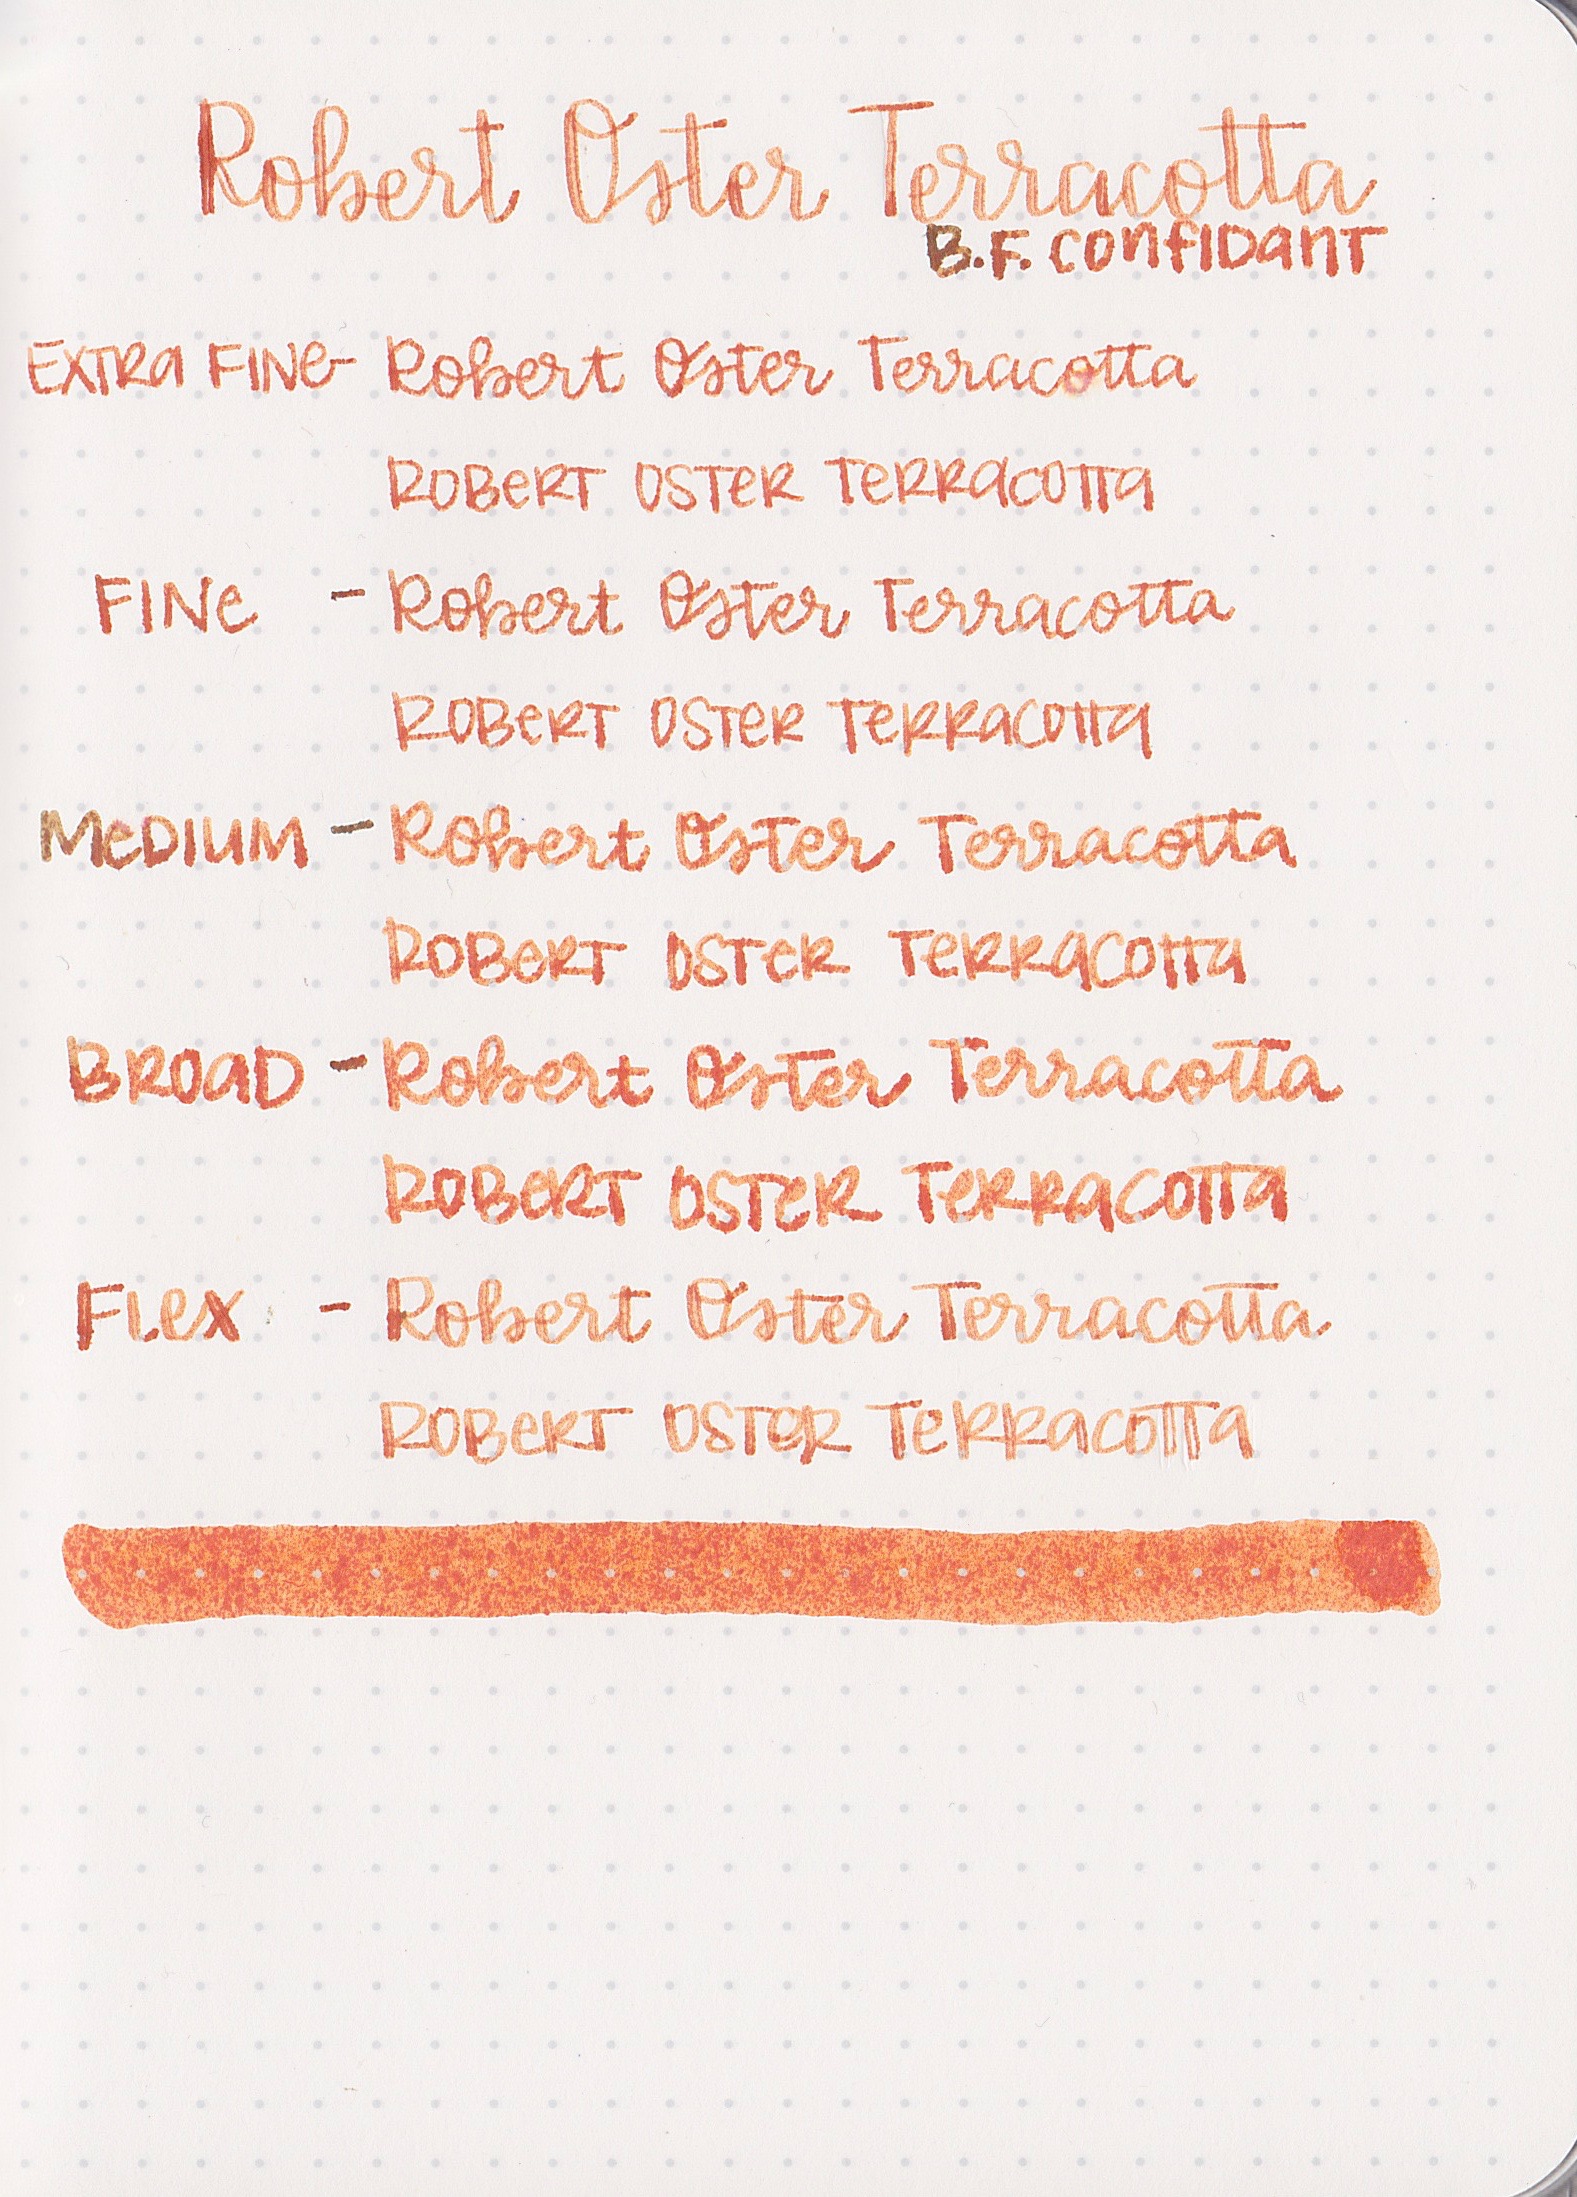 Robert Oster Terracotta
B.F. CONFIDANT
EXTRA FINE - Robert Oster Terracotta
ROBERT OSTER TERRACOTTA
FINE - Robert Oster Terracotta
ROBERT OSTER TERRACOTTA
MEDIUM - Robert Oster Terracotta
ROBERT OSTER TERRACOTTA
BROAD - Robert Oster Terracotta
ROBERT OSTER TERRACOTTA
FLEX - Robert Oster Terracotta
ROBERT OSTER TERRACOTTA